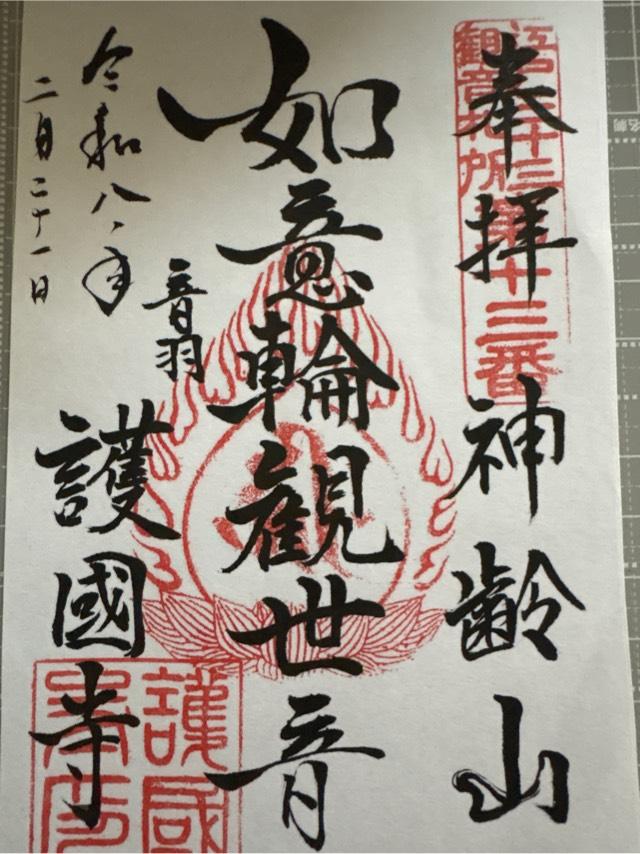 奉拝
神齢山
江戸三十三番
観音札所第十三番
如意輪観世音
音羽
護國寺
令和八年
二月二十一日
護國